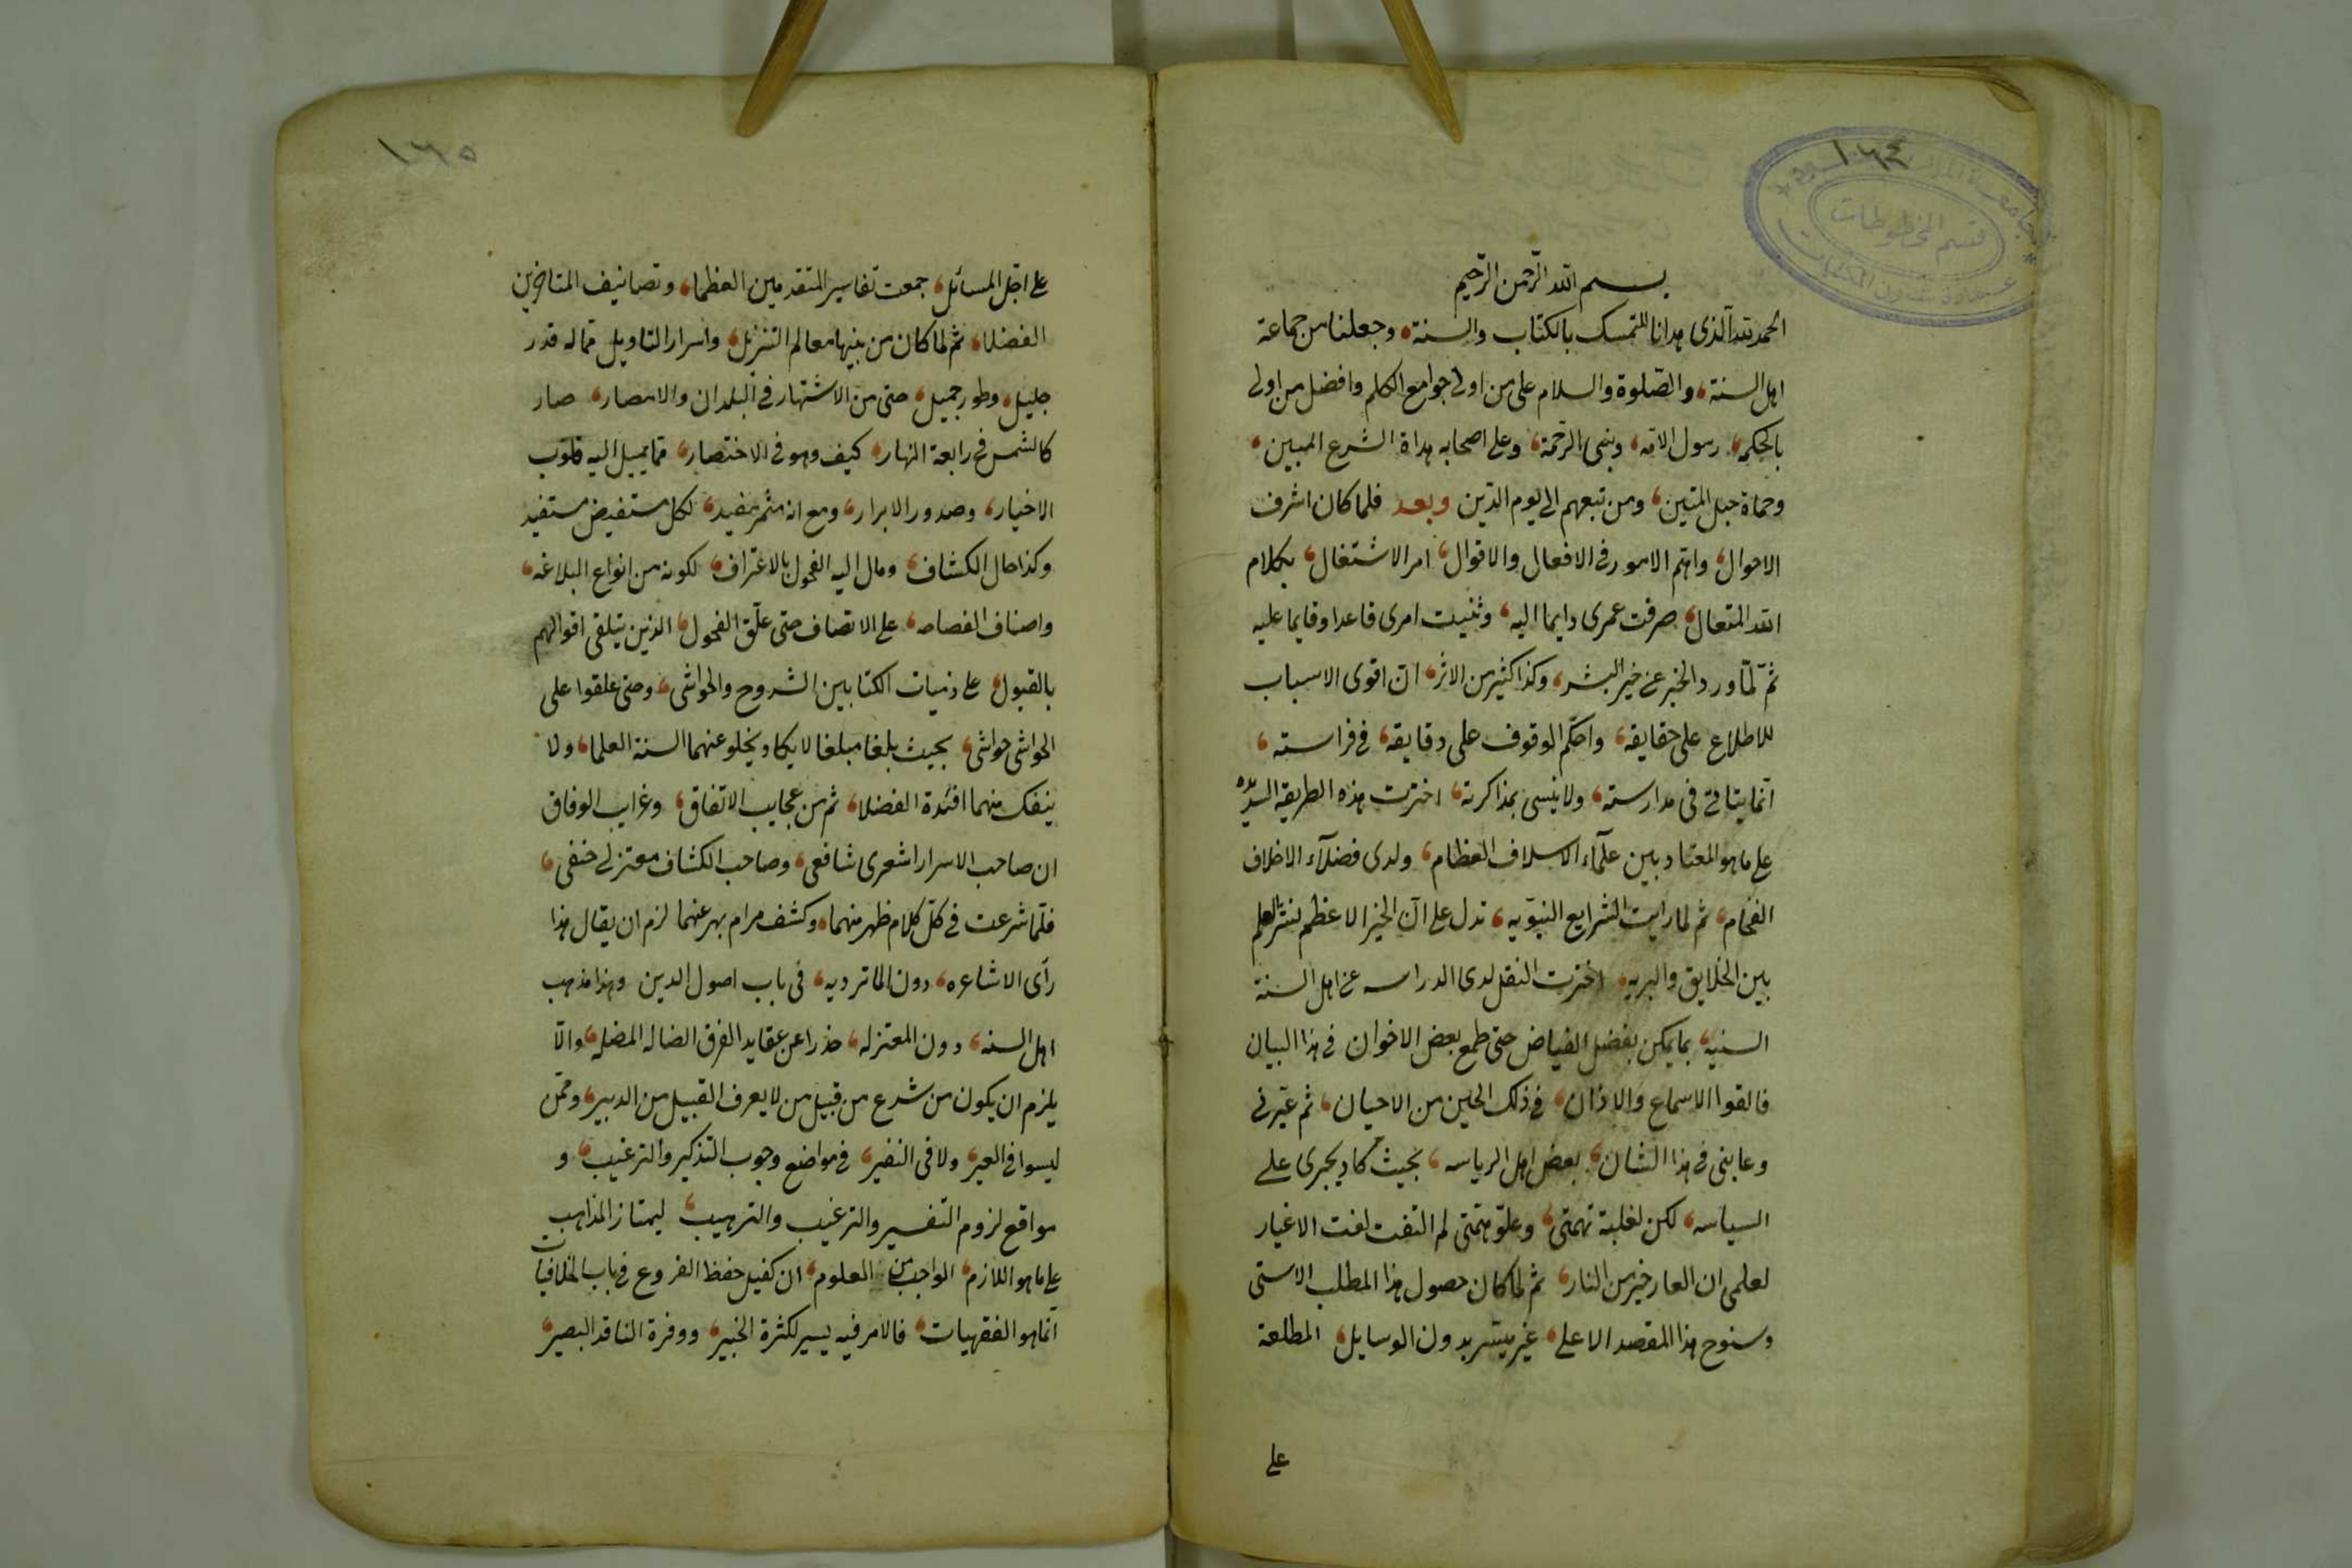 ١٦٤
قسم المخطوطات
بسم الله الرّحمن الرّحيم
الحمد لله الذى هدانا للتمسك بالكتاب والسنة، وجعلنا من جماعة
اهل السنة، والصّلوة والسلام على من اوتى جوامع الكلم وافضل من اوتى
بالحكمة، رسول الامة، ونبى الرّحمة، وعلى اصحابه هداة الشرع المبين،
وحماة حبل المتين، ومن تبعهم الى يوم الدّين وبعد فلما كان اشرف
الاحوال، واهم الامور فى الافعال والاقوال، امر الاشتغال، بكلام
الله المتعال، صرفت عمرى دايما اليه، وثنيت امرى قاعدا وقايما عليه
ثمّ لمّا ورد الخبر عن خير البشر، وكذا كثير من الاثر، انّ اقوى الاسباب
للاطلاع على حقايقه، واحكم الوقوف على دقايقه، فى فراسته،
انما يتاتى فى مدارسته، ولا ينسى بمذاكرته، اخترت هذه الطريقه السديده
على ما هو المعتاد بين علمآء الاسلاف العظام، ولدى فضلآء الاخلاف
الفخام، ثم لما رايت الشرايع النبويّه، تدل على انّ الخير الاعظم لنشر العلم
بين الخلايق والبريه، اخترت النقل لدى الدراسه عن اهل السنة
السنيه، بما يمكن بفضل الفياض حتى طمع بعض الاخوان فى هذا البيان
فالقوا الاسماع والاذان، فى ذلك الحين من الاحيان، ثم عيّرنى
وعابنى فى هذا الشان، بعض اهل الرياسه، بحيث كاد يجرى على
السياسه، لكن لغلبة نهمتى، وعلوّ همّتى لم التفت لفت الاغيار
لعلمى ان العار خير من النار، ثم لما كان حصول هذا المطلب الاسنى
وسنوح هذا المقصد الاعلى، غير ميسّر بدون الوسايل، المطلعة
على
١٦٥
على اجلّ المسائل، جمعت تفاسير المتقدمين العظما، وتصانيف المتاخرين
الفضلا، ثم لما كان من بينها معالم التنزيل، واسرار التاويل مما له قدر
جليل، وطور جميل، حتى من الاشتهار فى البلدان والامصار، صار
كالشمس فى رابعة النهار، كيف وهو فى الاختصار، مما يميل اليه قلوب
الاخيار، وصدور الابرار، ومع انه مثمر مفيد، لكل مستفيض مستفيد
وكذا حال الكشاف، ومال اليه الفحول بالاعتراف، لكونه من انواع البلاغه،
واصناف الفصاحه، على الاتصاف حتى علّق الفحول، الذين يتلقى اقوالهم
بالقبول، على ذنيات الكتابين الشروح والحواشى، وحتى علقوا على
الحواشى حواشى، بحيث بلغا مبلغا لا يكاد يخلو عنهما السنة العلما، ولا
ينفك منهما افئدة الفضلا، ثم من عجايب الاتفاق، وغرايب الوفاق
ان صاحب الاسرار اشعرى شافعى، وصاحب الكشاف معتزلى حنفى،
فلمّا شرعت فى كلّ كلام ظهر منهما، وكشف مرام بهر عنهما لزم ان يقال هذا
رأى الاشاعره، دون الماترديه، فى باب اصول الدين وهذا مذهب
اهل السنه، دون المعتزله، حذرا عن عقايد الفرق الضاله المضله، والّا
يلزم ان يكون من شرع من قبيل من لا يعرف القبيل من الدبير، وممّن
ليسوا فى العير، ولا فى النفير، فى مواضع وجوب التذكير والترغيب، و
مواقع لزوم التفسير والترغيب والترهيب، ليمتاز المذاهب
على ما هو اللازم، الواجب من العلوم، ان كفيل حفظ الفروع فى باب الخلافيات
انّما هو الفقهيات، فالامر فيه يسير لكثرة الخبير، ووفرة الناقد البصير،